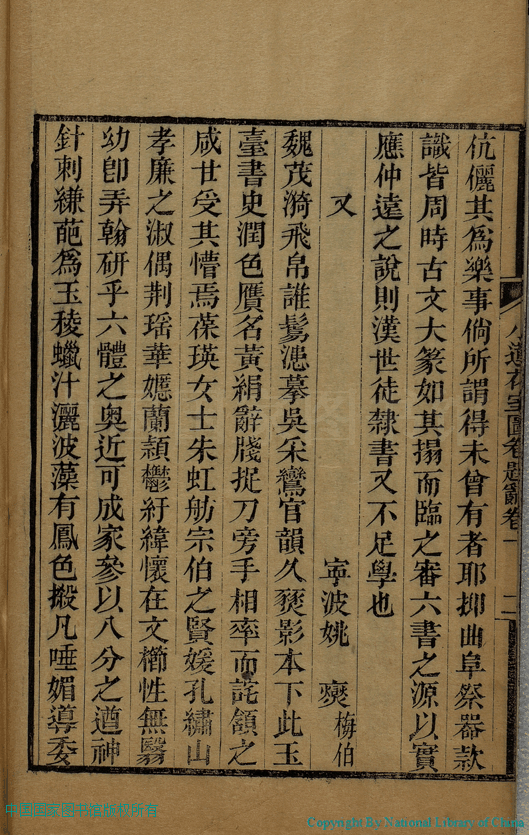 伉儷其爲樂事倘所謂得未曾有者耶抑曲阜祭器款
識皆周時古文大篆如其搨而臨之審六書之源以實
應仲遠之說則漢世徒隸書又不足學也
又 寧波姚燮梅伯
魏茂漪飛帛誰鬄漶摹吳采鸞官韻久燹影本下此玉
臺書史潤色贋名黃絹辭牋捉刀旁手相率而詫頷之
咸世受其懵焉葆瑛女士朱虹舫宗伯之賢媛孔繡山
孝廉之淑偶荆瑶華嬺蘭頴鬱紆緯懷在文櫛性無翳
幼卽弄翰研乎六體之奥近可成家參以八分之遒神
針刺縑葩爲玉稜蠟汁灑波藻有鳳色搬凡唾媚導委
小蓮花室圖卷題辭卷一 二
Copyright By National Library of China